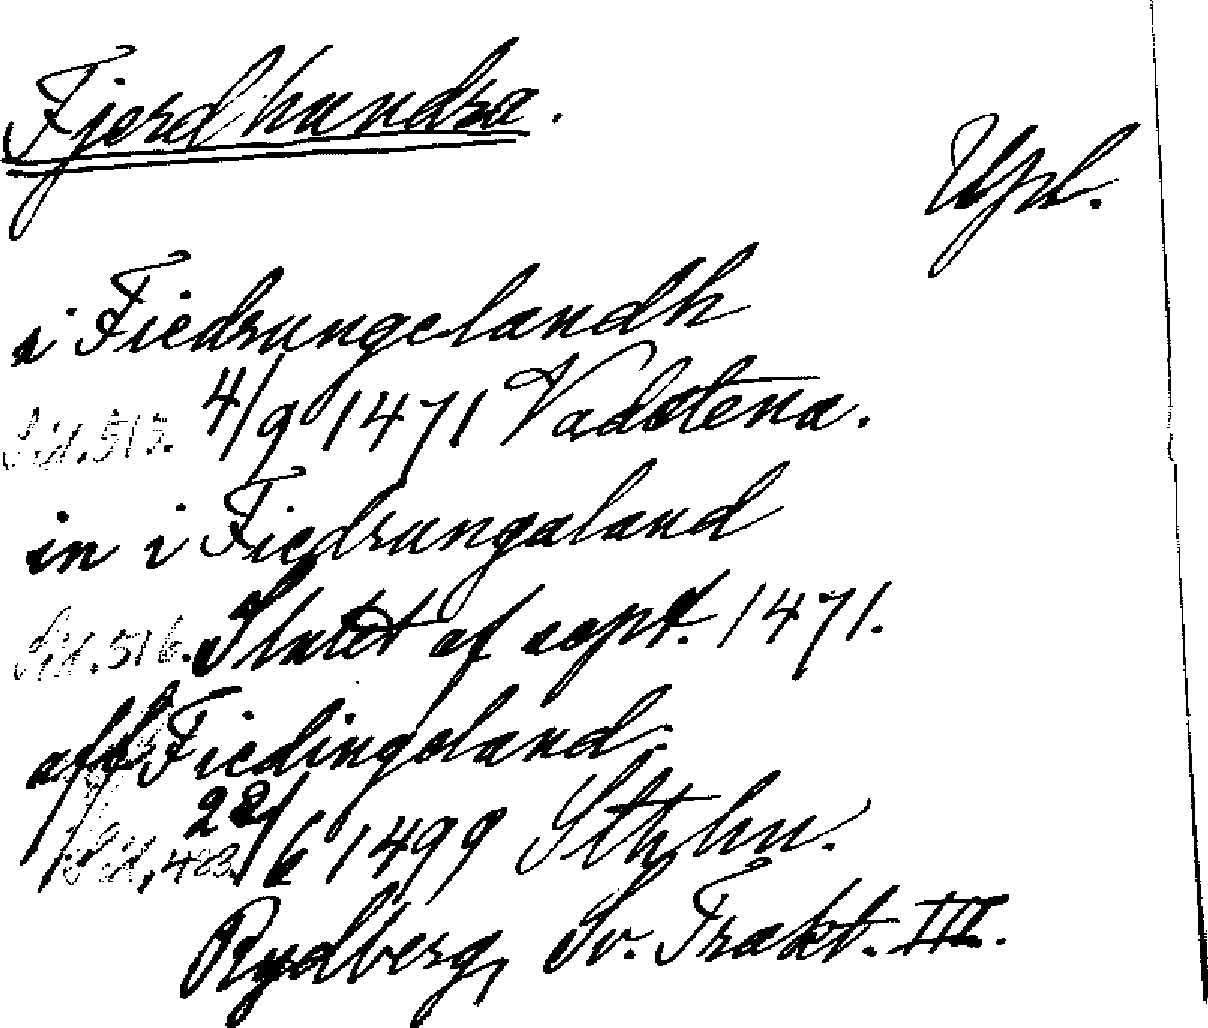 Fjerdhundra.
Upl.
i Fiedrungelandh
Sid. 515. 4/9 1471 Vadstena.
in i Fiedrungaland
Sid. 516. Slutet af sept. 1471.
aff Fiedingsland.
Sid. 423. 22/6 1499 Sthlm.
Rydberg, Sv. Trakt. III.